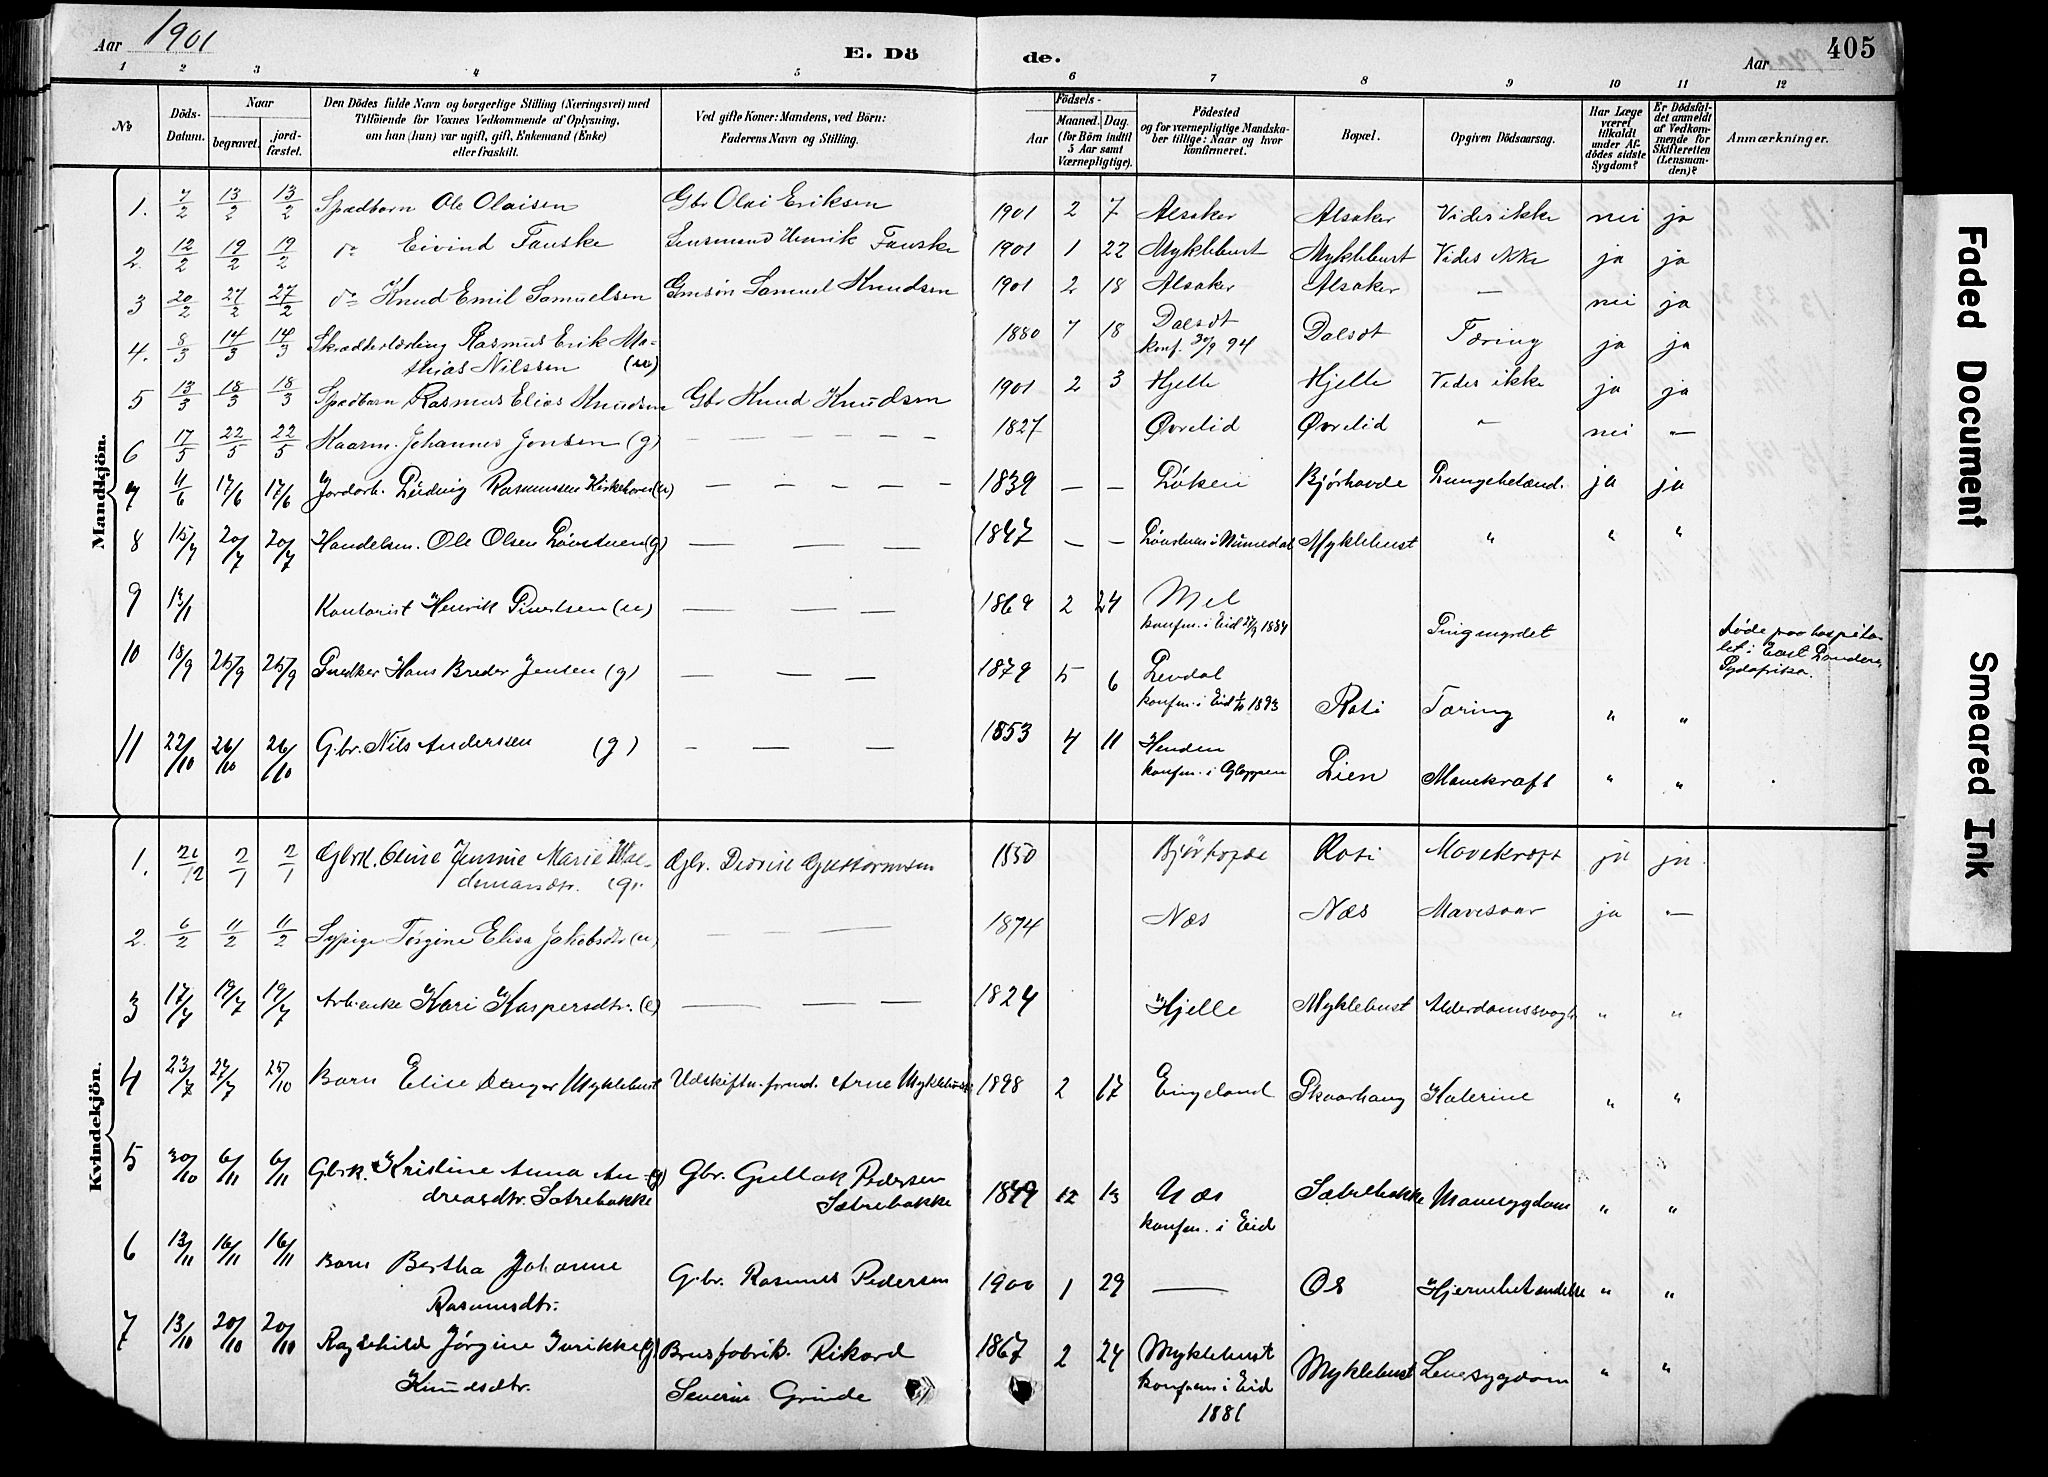 Aar 1901
E. Dö
de.
Aar
405
1 2 3 4 5 6 7 8 9 10 11 12
No
Döds-Datum.
Naar
begravet.
jord-fæstet.
Den Dödes fulde Navn og borgerlige Stilling (Næringsvei) med
Tilföiende för Voxnes Vedkommende af Oplysning,
om han (hun) var ugift, gift, Enkemand (Enke)
eller fraskilt.
Ved gifte Koner: Mandens, ved Börn:
Faderens Navn og Stilling.
Födsels-
Aar
Maaned. Dag.
(for Börn indtil
5 Aar samt
Værnepligtige).
Födested
og for værnepligtige Mandska-
ber tillige: Naar og hvor
konfirmeret.
Bopæl.
Opgiven Dödsaarsag.
Har Læge
været
tilkaldt
under Af-
dödes sidste
Sygdom?
Er Dödsfal-
det anmeldt
af Vedkom-
mende for
Skifteretten
(Lensman-
den)?
Anmærkninger.
Mandkjön.
1. 7/2 13/2 13/2 Spædbarn Ole Olaisen Gbr Olai Eriksen 1901 2 7 Alsaker Alsaker Vides ikke nei ja
2. 12/2 19/2 19/2 do Eivind Fauske Lensmand Henrik Fauske 1901 1 22 Myklebust Myklebust Vides ikke ja ja
3 20/2 27/2 27/2 do Knud Emil Samuelsen Gmsön Samuel Knudsen 1901 2 18 Alsaker Alsaker — nei ja
4. 8/3 14/3 14/3 Skrædderlærling Rasmus Erik Ma-
thias Nilssen (u) 1880 7 18 Dalsöt Dalsöt Tæring ja ja
konf. 30/9 94
5 13/3 18/3 18/3 Spædbarn Rasmus Elias Knudsen Gbr Knud Knudsen 1901 2 3 Hjelle Hjelle Vides ikke ja ja
6 17/5 22/5 22/5 Kaarm. Johannes Jonsen (g) — — — — — 1827 Øvrelid Øvrelid " nei —
7 11/6 17/6 17/6 Jordarb. Ludvig Rasmussen (u) — — — — — 1839 — — Løken Bjørhovde Lungebetænd. ja ja
8 15/7 20/7 20/7 Handelsm. Ole Olsen Løvstuen (g) — — — 1847 — — Løvstuen i Numedal Myklebust " " "
9 13/1 Kontorist Henrik (u) — — — 1869 2 24 Mel
konfm. i Eid 1884
10 18/9 25/9 25/9 Snedker Hans Breder Jensen (g) — — — 1879 5 6 Levdal Roti Tæring " "
konfm. i Eid 1893
Døde paa hospita-
let i East London,
Sydafrika.
11 22/10 26/10 26/10 Gbr. Nils Anderssen (g) — — — 1853 4 11 Henden Lien Mavekræft " "
konfm. i Gloppen
Kvindekjön.
1. 26/12 2/1 2/1 Gbrk. Oluse Jensine Marie Wal-
demarsdtr. (g) Gbr. Didrik Guttormsen 1850 Bjørhovde Roti Mavekræft ja ja
2. 6/2 11/2 11/2 Sypige Torgine Elisa Jakobsdtr (u) — — — 1874 Næs Næs Mavesaar ja —
3 17/7 19/7 19/7 Arb.enke Kari Kaspersdtr. (e) — — — 1824 Hjelle Myklebust Alderdomssvagh. " "
4 23/7 27/7 25/10 Barn Elise Myklebust Udskiftn.formd. Arne Myklebust 1898 2 17 Eingeland Skaarhaug Katerine " "
5 30/10 6/11 6/11 Gbrk. Kristine Anna An-
dreasdtr. Sætrebakke (g) Gbr. Gullak Pedersen
Sætrebakke 1849 12 13 Næs Sætrebakke Mavesygdom " "
konfm. i Eid
6 13/11 16/11 16/11 Barn Bertha Johanne
Rasmusdtr. Gbr. Rasmus Pedersen 1900 1 29 — Os Hjernebetændelse " "
7 13/10 20/10 20/10 Ragnhild Jørgine
Knudsdtr. Brusfabrik. Rikard
Severin Grinde 1867 2 24 Myklebust Myklebust Leversygdom " "
konfm i Eid
1881
Faded Document
Smeared Ink